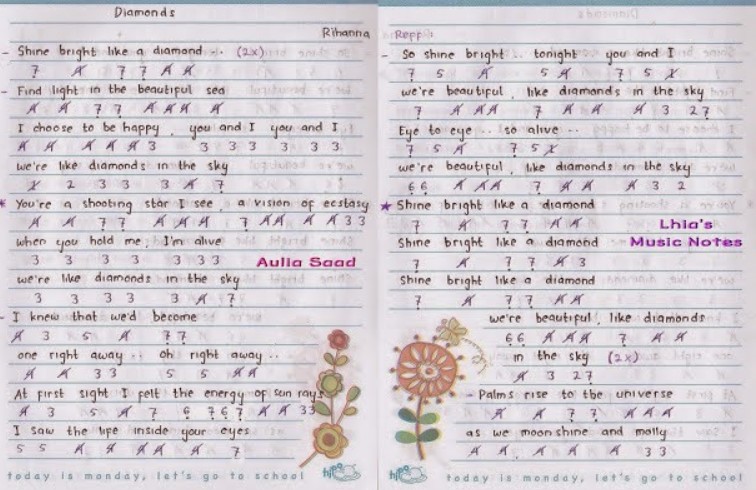 Diamonds
Rihanna
- Shine bright like a diamond ·· (2x)
7 4̸ 7 7 4̸ 4̸
- Find light in the beautiful sea
4̸ 4̸ 7 7 4̸ 4̸ 4̸ 4̸
I choose to be happy , you and I you and I
4̸ 4̸ 4̸ 4̸ 4̸ 3 3 3 3 3 3 3
we're like diamonds in the sky
1̸ 2 3 3 3 4̸ 7
* You're a shooting star I see , a vision of ecstasy
4̸ 4̸ 7 7 4̸ 4̸ 4̸ 7 4̸ 4̸ 4̸ 4̸ 3 3
when you hold me, I'm alive
3 3 3 3 3 3 3
Aulia Saad
we're like diamonds in the sky
3 3 3 3 3 4̸ 7
- I knew that we'd become
4̸ 3 5 4̸ 7 7
one right away ·· oh right away ··
4̸ 4̸ 3 3 5 5 4̸ 4̸
At first sight I felt the energy of sun rays
4̸ 3 5 4̸ 7 6 7 6 7 4̸ 4̸ 3 3
I saw the life inside your eyes
5 5 4̸ 4̸ 4̸ 4̸ 4̸ 7
today is monday, let's go to school
hipo
Repp :
- So shine bright ·· tonight you and I
7 5 4̸ 5 4̸ 7 5 1̸
we're beautiful, like diamonds in the sky
7 4̸ 4̸ 4̸ 7 4̸ 4̸ 4̸ 3 2 7
Eye to eye ·· so alive ··
7 5 4̸ 7 5 1̸
we're beautiful, like diamonds in the sky
6 6 4̸ 4̸ 4̸ 7 4̸ 4̸ 4̸ 3 2
★ Shine bright like a diamond
7 4̸ 7 7 4̸ 4̸
Lhia's
Shine bright like a diamond
Music Notes
7 4̸ 7 7 4̸ 3
Shine bright like a diamond
7 4̸ 7 7 4̸ 4̸
we're beautiful, like diamonds
6 6 4̸ 4̸ 4̸ 7 4̸ 4̸
in the sky (2x)
4̸ 3 2 7
- Palms rise to the universe
4̸ 4̸ 7 7 4̸ 4̸ 4̸
as we moonshine and molly
4̸ 4̸ 4̸ 4̸ 4̸ 3 3
today is monday, let's go to school
hipo